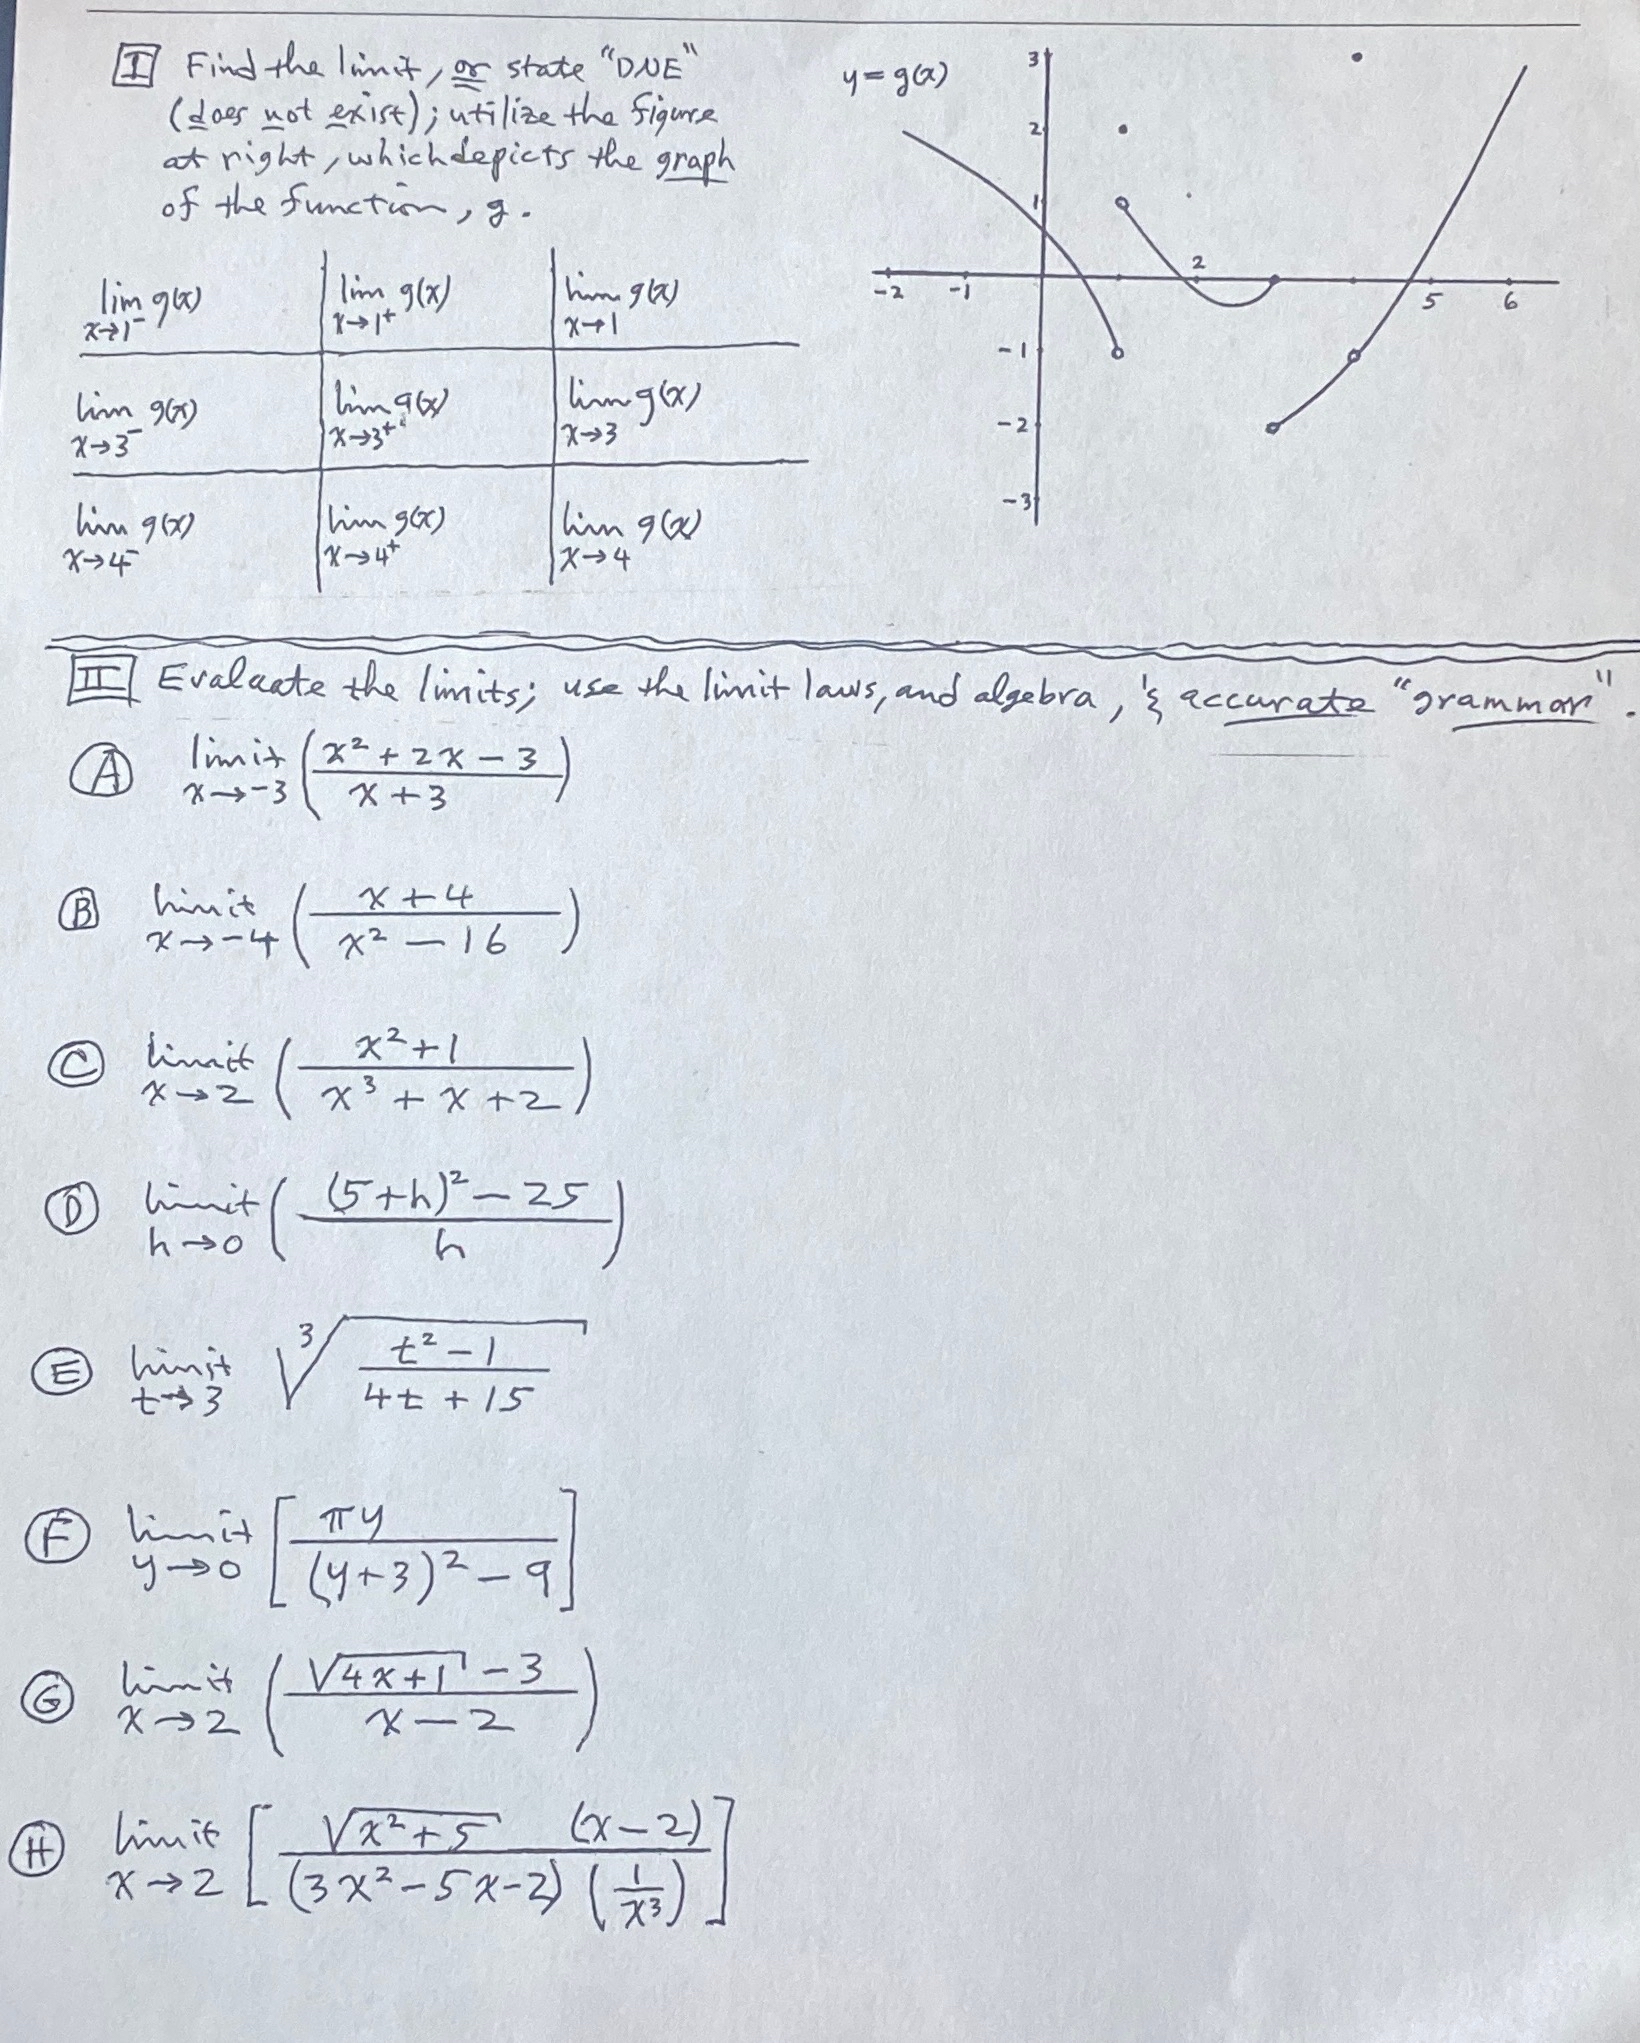 I Find the limit, or state "DNE"
(does not exist); utilize the figure
at right, which depicts the graph
of the function, g.
lim x→1⁻ g(x) lim x→1⁺ g(x) lim x→1 g(x)
lim x→3⁻ g(x) lim x→3⁺ g(x) lim x→3 g(x)
lim x→4⁻ g(x) lim x→4⁺ g(x) lim x→4 g(x)
y = g(x)
3
2
1
-2 -1 2 5 6
-1
-2
-3
II Evaluate the limits; use the limit laws, and algebra, & accurate "grammar".
A limit x→-3 ( (x² + 2x - 3) / (x + 3) )
B limit x→-4 ( (x + 4) / (x² - 16) )
C limit x→2 ( (x² + 1) / (x³ + x + 2) )
D limit h→0 ( ((5+h)² - 25) / h )
E limit t→3 ³√( (t² - 1) / (4t + 15) )
F limit y→0 [ πy / ((y+3)² - 9) ]
G limit x→2 ( (√(4x+1) - 3) / (x - 2) )
H limit x→2 [ √(x²+5) (x-2) / ((3x² - 5x - 2) (1/x³)) ]